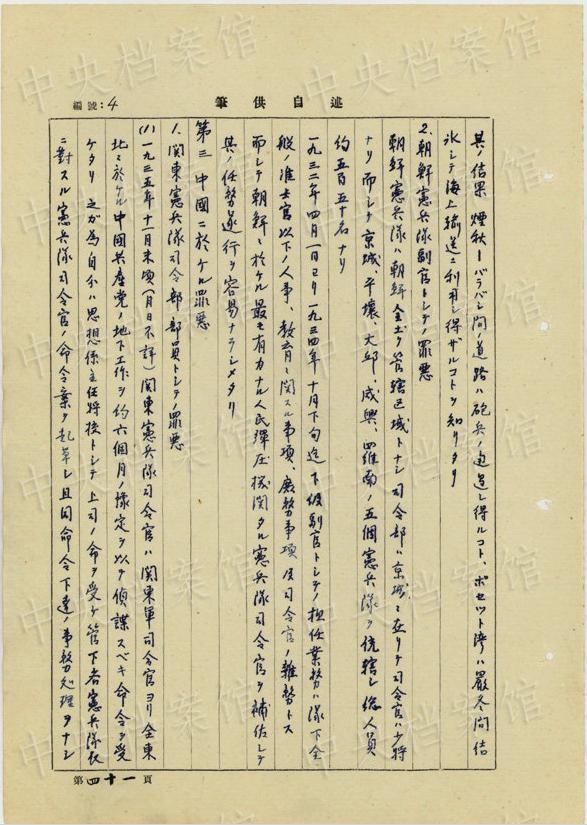 編號：4
筆供自述
其ノ結果 煙秋ーバラバシ間ノ道路ハ砲兵ノ通過シ得ルコト、ポセット湾ハ嚴冬間結
氷シテ海上輸送ニ利用シ得ザルコトヲ知リタリ
2. 朝鮮憲兵隊副官トシテノ罪悪
朝鮮憲兵隊ハ朝鮮全土ヲ管轄区域トナシ司令部ハ京城ニ在リテ司令官ハ少将
ナリ 而シテ京城、平壤、大邱、咸興、羅南ノ五個憲兵隊ヲ統轄シ總人員
約五百五十名ナリ
一九三二年四月一日ヨリ一九三四年十月下旬迄 下級副官トシテノ担任業務ハ隊下全
般ノ准士官以下ノ人事、教育ニ関スル事項、庶務事項及司令官ノ雜務トス
而シテ朝鮮ニ於ケル最モ有力ナル人民彈圧機関タル憲兵隊司令官ヲ補佐シテ
其ノ任務遂行ヲ容易ナラシメタリ
第三 中國ニ於ケル罪悪
1. 関東憲兵隊司令部部員トシテノ罪悪
(1) 一九三五年十一月末頃(月日不詳)関東憲兵隊司令官ハ関東軍司令官ヨリ全東
北ニ於ケル中國共産党ノ地下工作ヲ約六個月ノ豫定ヲ以テ偵諜スベキ命令ヲ受
ケタリ 之ガ為自分ハ思想係主任将校トシテ上司ノ命ヲ受ケ管下各憲兵隊長
ニ對スル憲兵隊司令官ノ命令案ヲ起草シ且同命令下達ノ事務処理ヲナシ
第四十一頁
中央档案馆